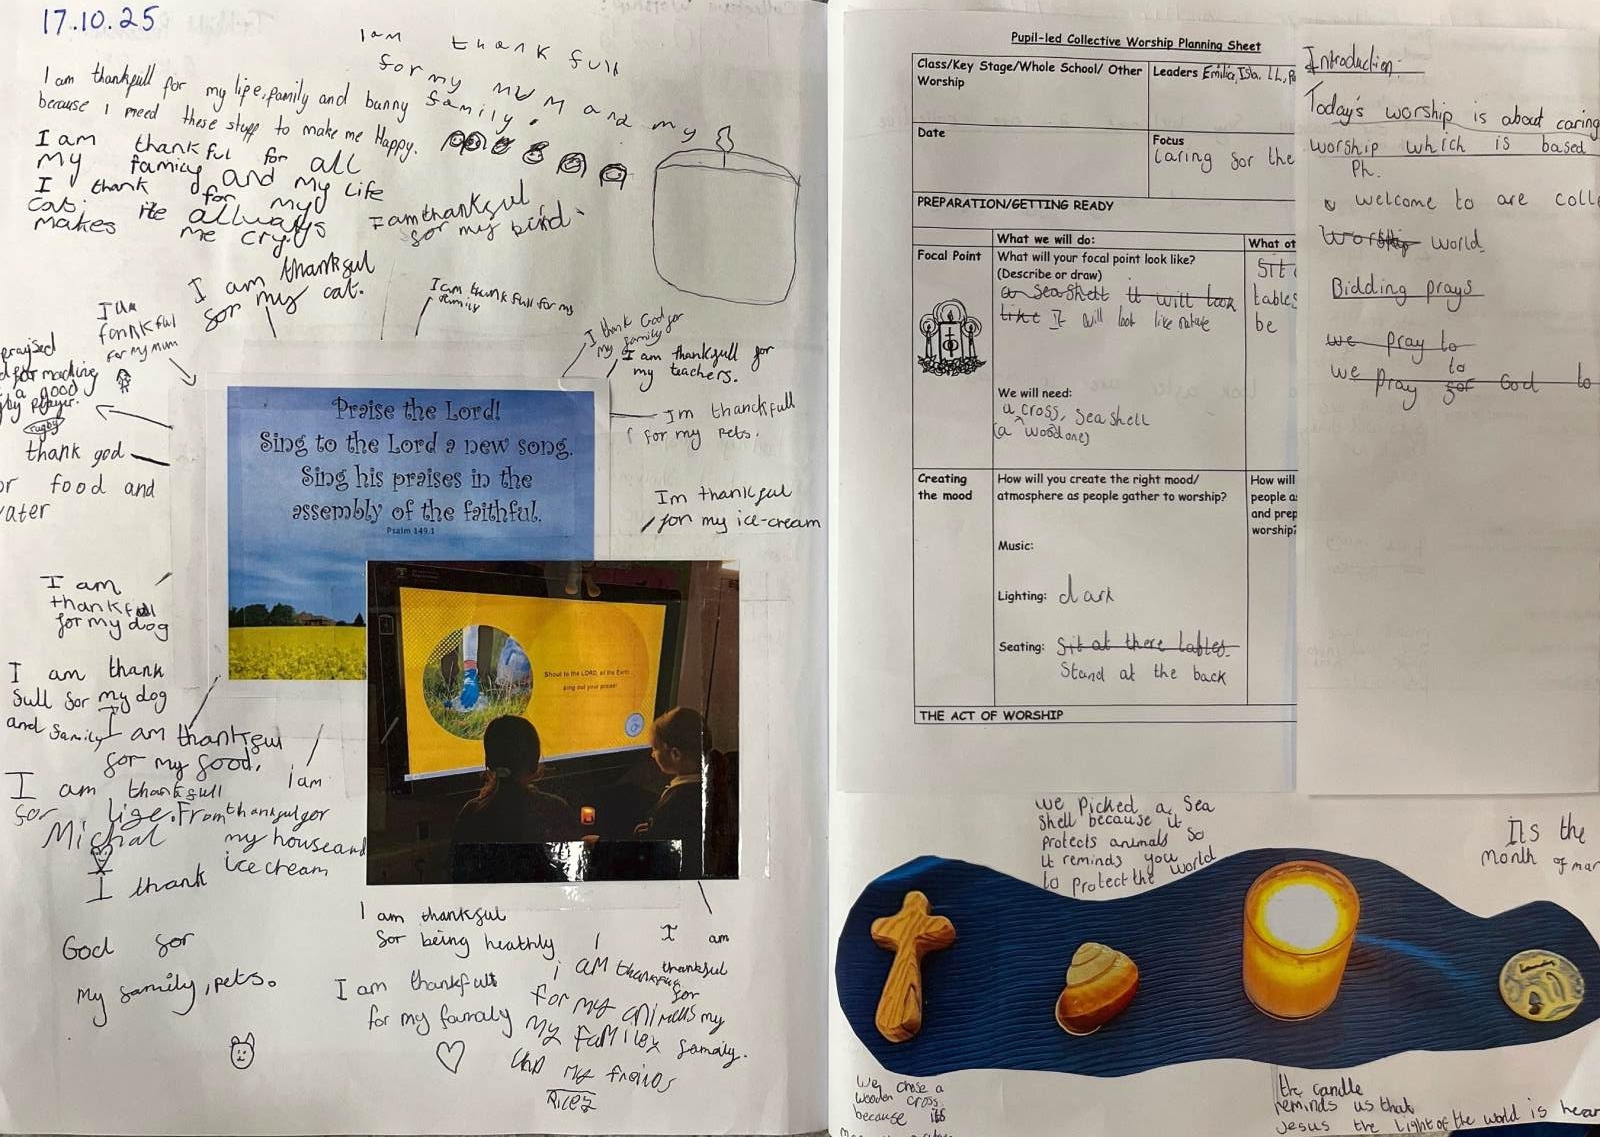 17.10.25
I am thankfull
for my mum and my
family.
I am thankfull for my lipe, family and bunny
because I need these stuff to make me Happy.
I am thankful for all
my family and my life
I thank for my
cat. He allways
makes me cry.
I am thankful
for my bird.
I am thankful
for my cat.
I am thank full for my
family
I am
fankful
for my mum
I thank God for
my family
I am thankfull for
my teachers.
praised
for making
a good
player.
rugby
Im thanckfull
for my pets.
thank god
or food and
water
Im thankful
for my ice-cream
Praise the Lord!
Sing to the Lord a new song.
Sing his praises in the
assembly of the faithful.
Psalm 149.1
Shout to the LORD, all the Earth
sing out your praise!
I am
thankful
for my dog
I am thank
full for my dog
and family
I am thankful
for my food.
I am thankfull
for life. From
Michal
i am
thankful for
my house and
ice cream
I thank
God for
my family, pets.
I am thankful
for being heathly
I am thankful
for my famaly
i am thankful
for my animals
my familey
and my freinds
Riley
I am
thankful
for
my
famaly.
Pupil-led Collective Worship Planning Sheet
Class/Key Stage/Whole School/ Other
Worship
Leaders Emilia, Isla. LL,
Date
Focus
Caring for the
PREPARATION/GETTING READY
What we will do:
What ot
Focal Point
What will your focal point look like?
(Describe or draw)
a seashell it will look
like It will look like nature
We will need:
a cross, sea shell
(a wood one)
Sit
tables
be
Creating
the mood
How will you create the right mood/
atmosphere as people gather to worship?
Music:
Lighting: dark
Seating: Sit at there tables
Stand at the back
How will
people as
and prep
worship?
THE ACT OF WORSHIP
Introduction:
Today's worship is about caring
worship which is based
Ph.
welcome to are colle
Worship world
Bidding prays
we pray to
to
we pray for God to
we Picked a Sea
Shell because it
protects animals so
it reminds you
to protect the world
Its the
month of mar
We chose a
wooden cross
because its
the candle
reminds us that
Jesus the Light of the world is hear